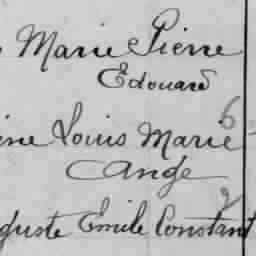 Marie Pierre
Edouard
6
ine Louis Marie
Ange
2
guste Emile Constant